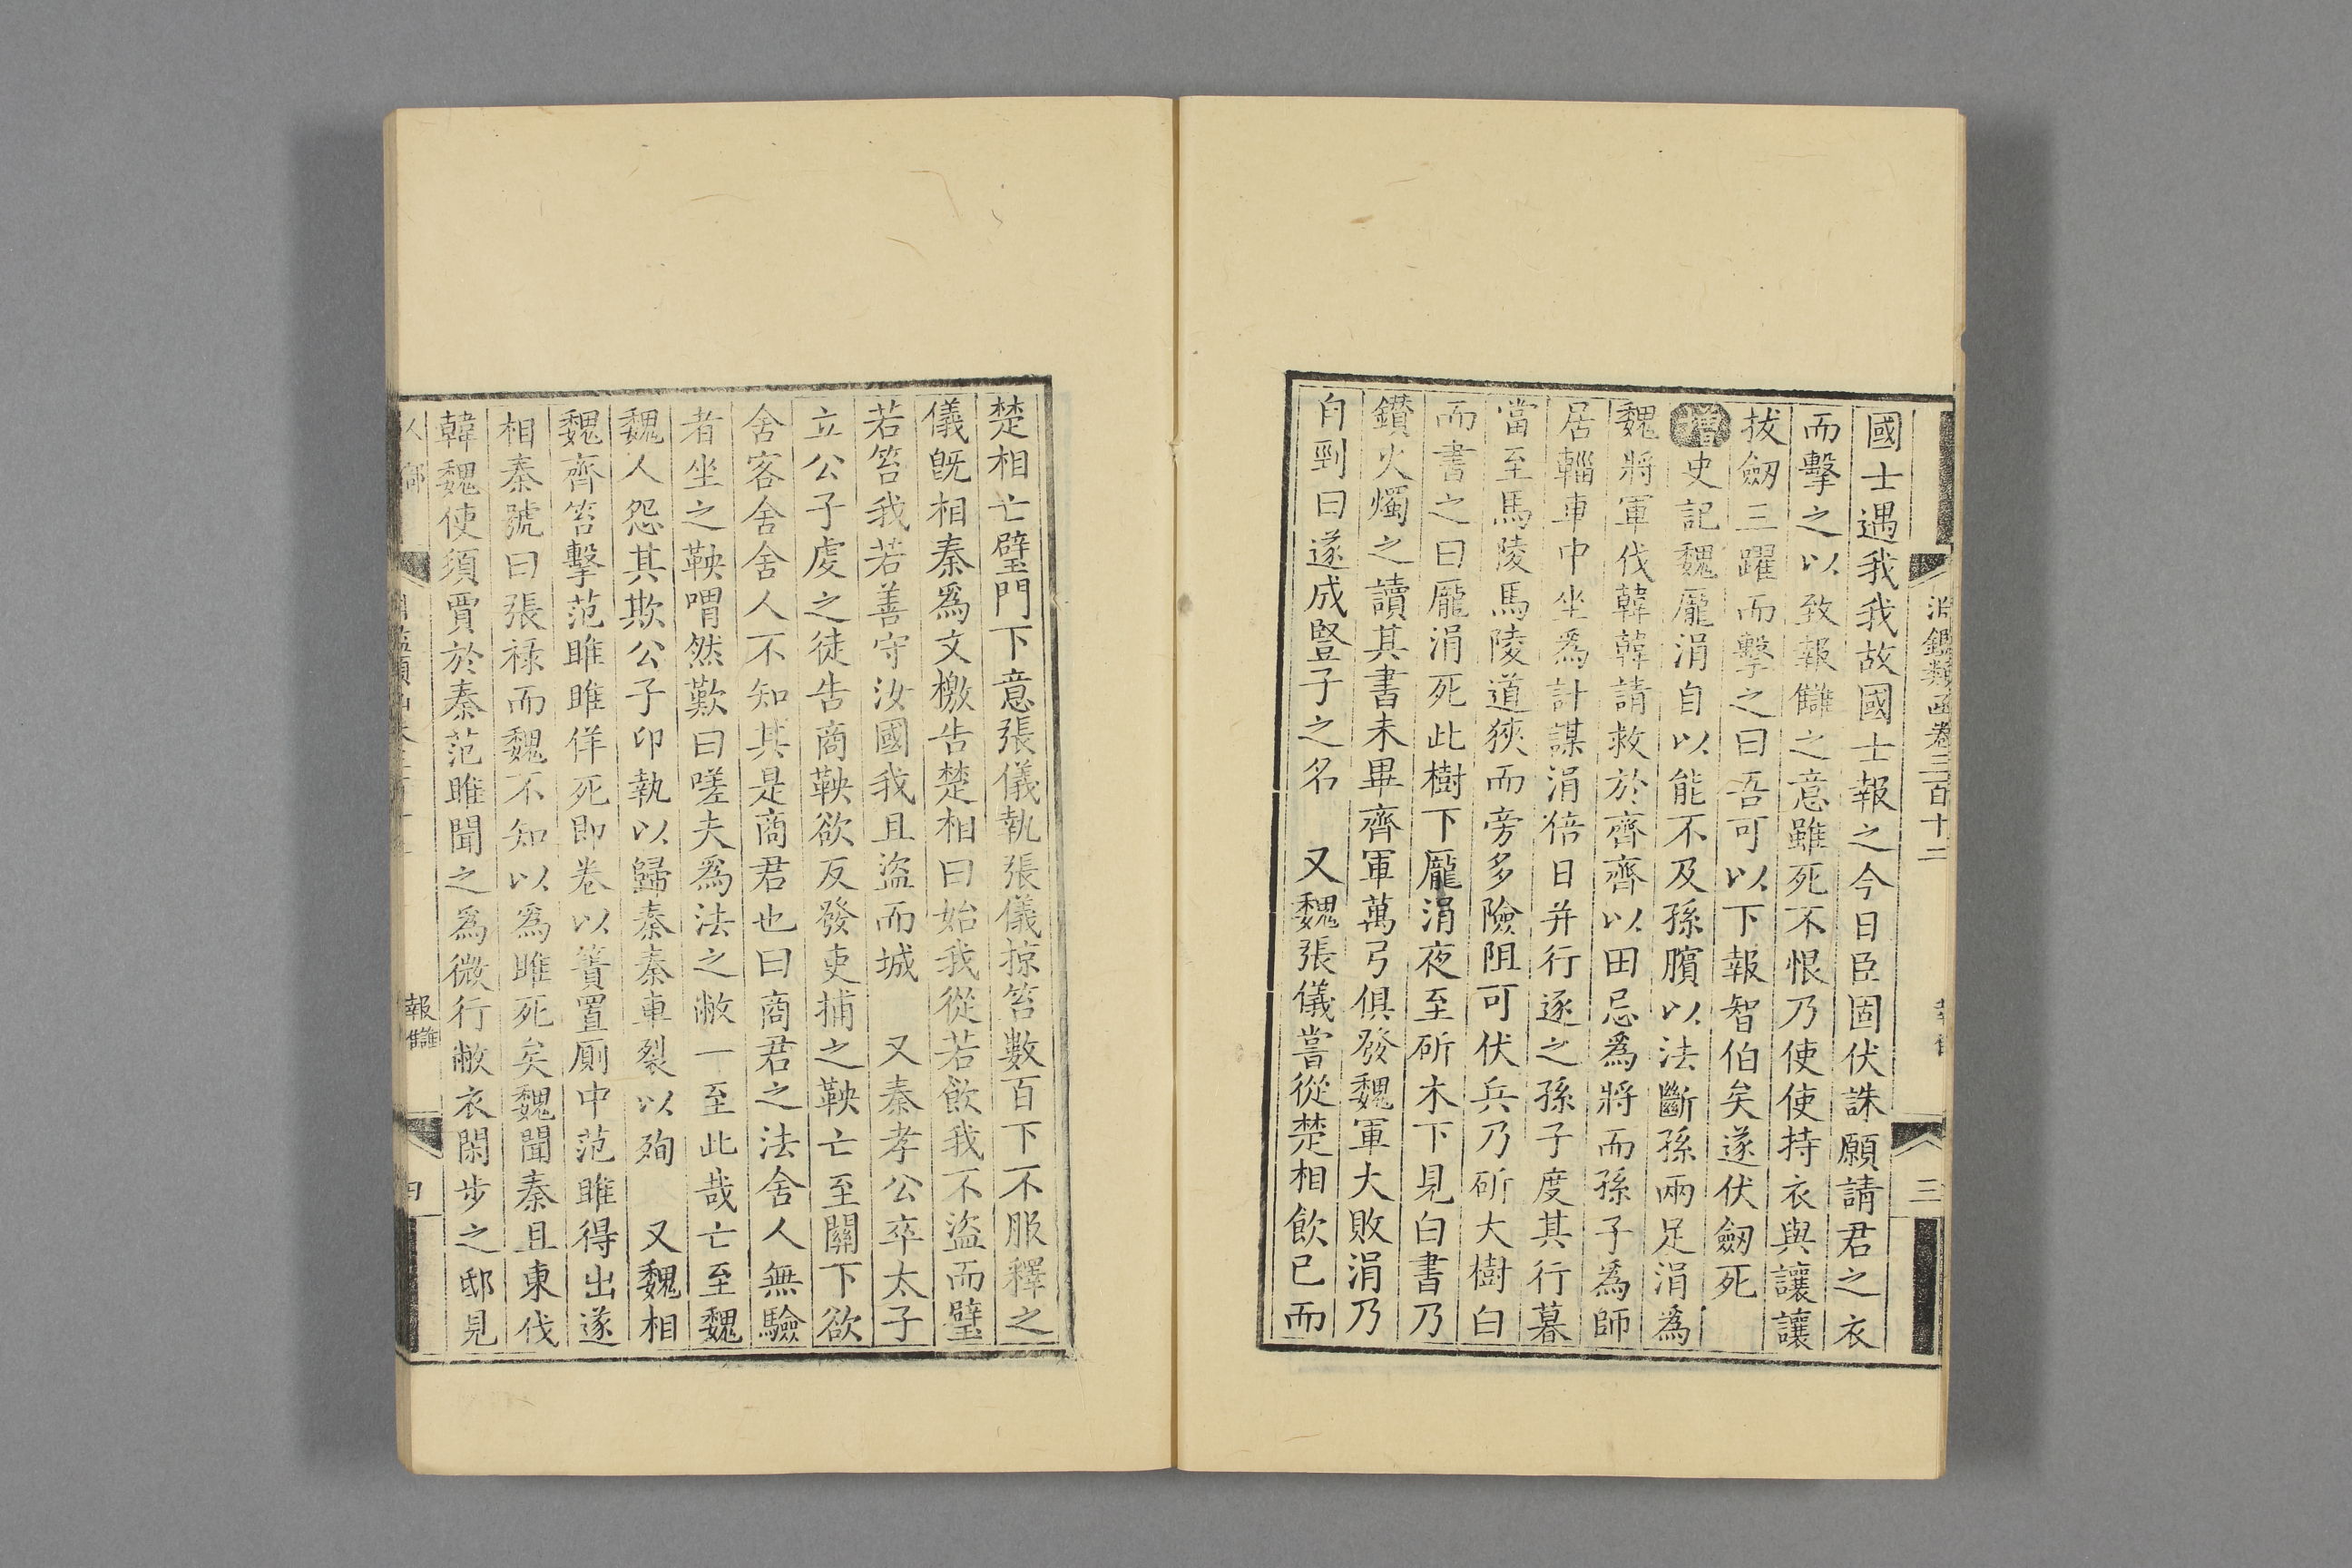 淵鑑類函卷三百十二
三
國士遇我我故國士報之今日臣固伏誅願請君之衣
而擊之以致報讎之意雖死不恨乃使使持衣與讓讓
拔劔三躍而擊之曰吾可以下報智伯矣遂伏劔死
增史記魏龐涓自以能不及孫臏以法斷孫兩足涓爲
魏將軍伐韓韓請救於齊齊以田忌爲將而孫子爲師
居輜車中坐爲計謀涓倍日并行逐之孫子度其行暮
當至馬陵馬陵道狹而旁多險阻可伏兵乃斫大樹白
而書之曰龐涓死此樹下龐涓夜至斫木下見白書乃
鑽火燭之讀其書未畢齊軍萬弓俱發魏軍大敗涓乃
自剄曰遂成豎子之名 又魏張儀嘗從楚相飲已而
楚相亡璧門下意張儀執張儀掠笞數百下不服釋之
儀既相秦爲文檄告楚相曰始我從若飲我不盜而璧
若笞我若善守汝國我且盜而城 又秦孝公卒太子
立公子虔之徒告商鞅欲反發吏捕之鞅亡至關下欲
舍客舍舍人不知其是商君也曰商君之法舍人無驗
者坐之鞅喟然歎曰嗟夫爲法之敝一至此哉亡至魏
魏人怨其欺公子卬執以歸秦秦車裂以殉 又魏相
魏齊笞擊范雎雎佯死即卷以簀置厠中范雎得出遂
相秦號曰張祿而魏不知以爲雎死矣魏聞秦且東伐
韓魏使須賈於秦范雎聞之爲微行敝衣閑步之邸見
報讎